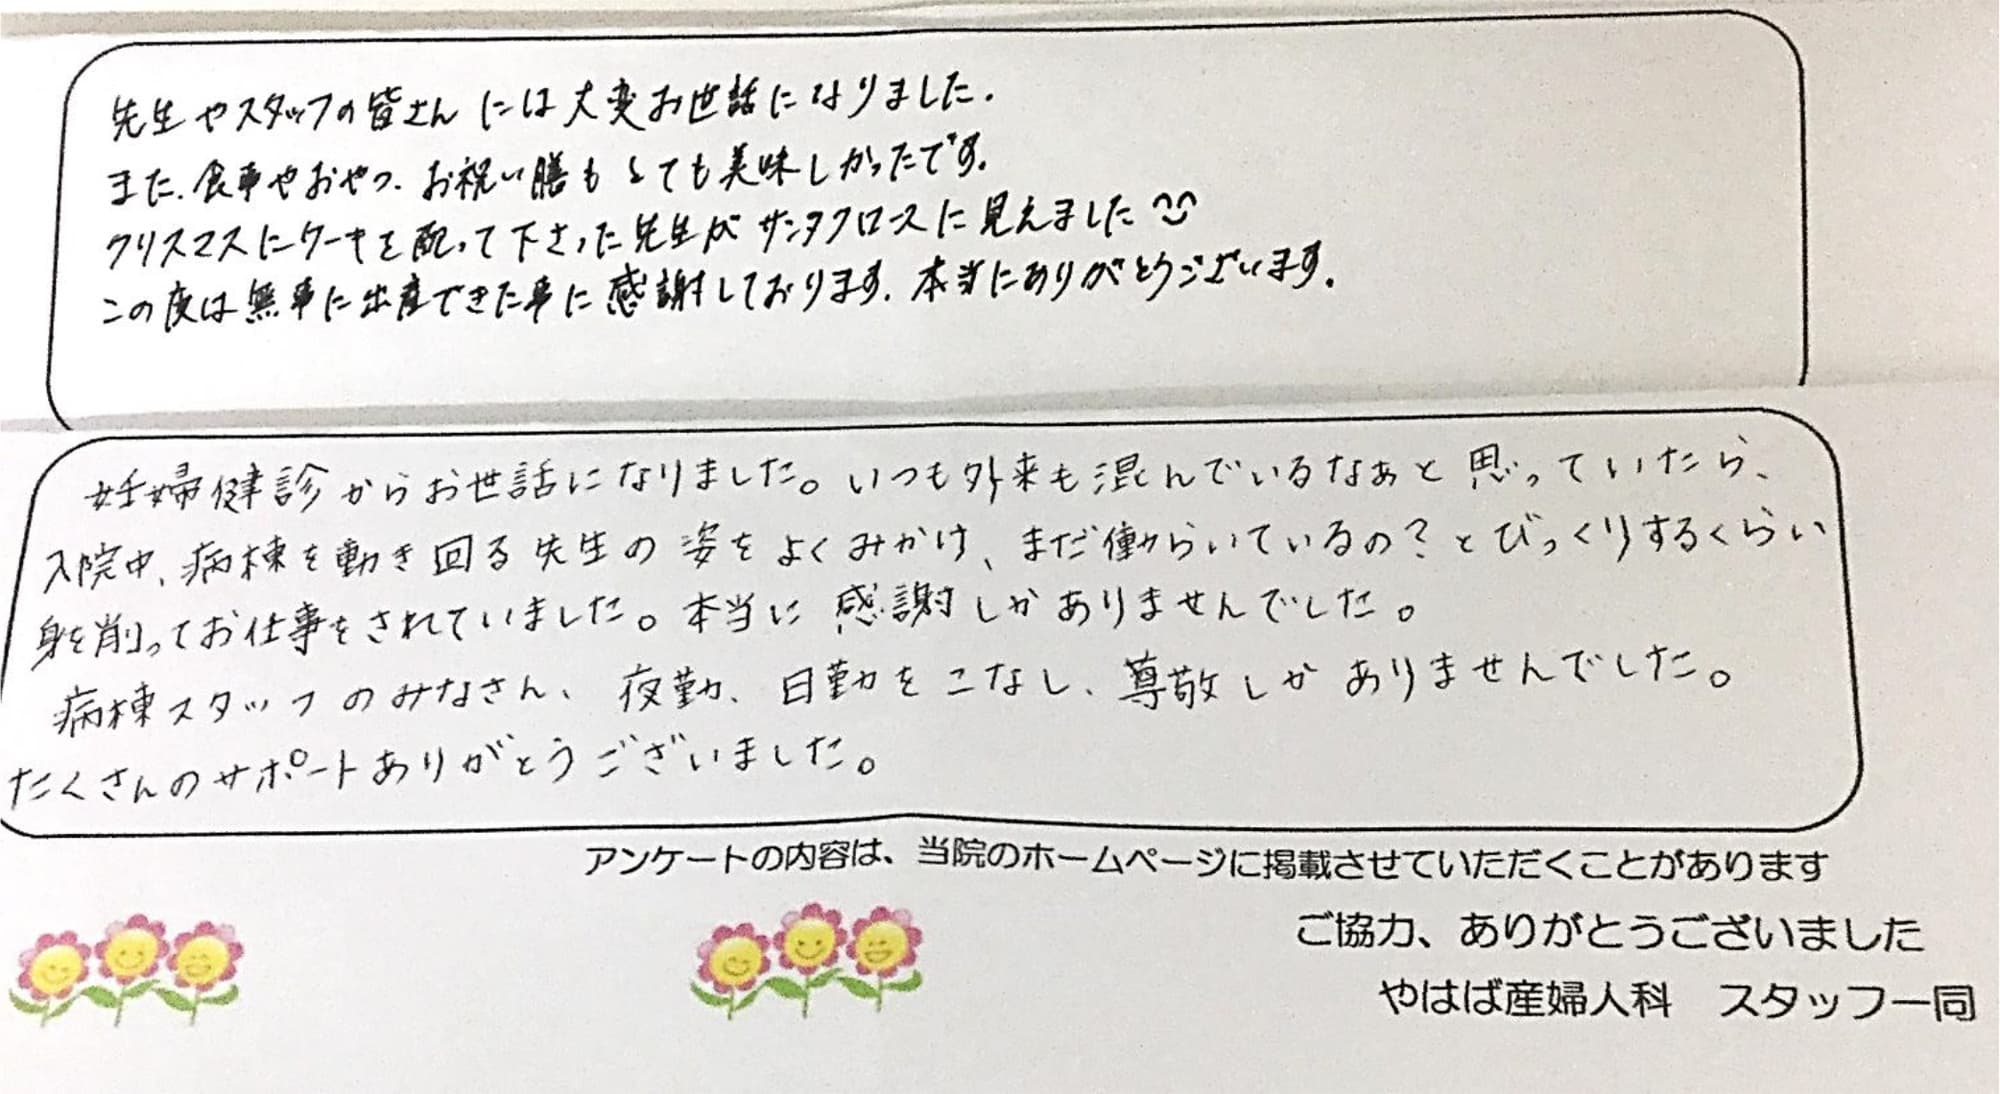 先生やスタッフの皆さんには大変お世話になりました.
また、食事やおやつ、お祝い膳もとても美味しかったです.
クリスマスにケーキを配って下さった先生がサンタクロースに見えました
この度は無事に出産できた事に感謝しております. 本当にありがとうございます.
妊婦健診からお世話になりました。いつも外来も混んでいるなぁと思っていたら、
入院中、病棟を動き回る先生の姿をよくみかけ、まだ働らいているの？とびっくりするくらい
身を削ってお仕事をされていました。本当に感謝しかありませんでした。
病棟スタッフのみなさん、夜勤、日勤をこなし、尊敬しかありませんでした。
たくさんのサポートありがとうございました。
アンケートの内容は、当院のホームページに掲載させていただくことがあります
ご協力、ありがとうございました
やはば産婦人科　スタッフ一同